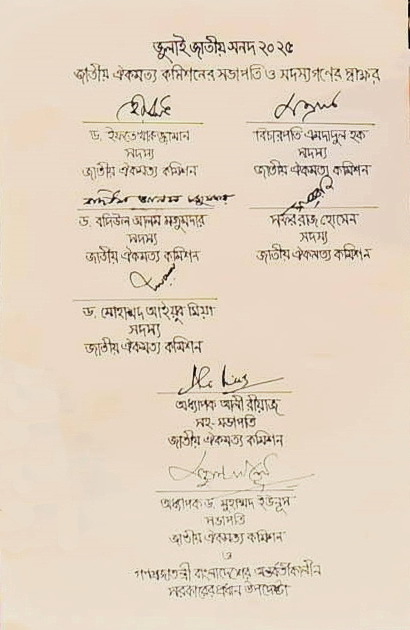 জুলাই জাতীয় সনদ ২০২৫
জাতীয় ঐকমত্য কমিশনের সভাপতি ও সদস্যগণের স্বাক্ষর
ড. ইফতেখারুজ্জামান
সদস্য
জাতীয় ঐকমত্য কমিশন
বিচারপতি এমদাদুল হক
সদস্য
জাতীয় ঐকমত্য কমিশন
ড. বদিউল আলম মজুমদার
সদস্য
জাতীয় ঐকমত্য কমিশন
সফর রাজ হোসেন
সদস্য
জাতীয় ঐকমত্য কমিশন
ড. মোহাম্মদ আইয়ুব মিয়া
সদস্য
জাতীয় ঐকমত্য কমিশন
অধ্যাপক আলী রীয়াজ
সহ-সভাপতি
জাতীয় ঐকমত্য কমিশন
অধ্যাপক ড. মুহাম্মদ ইউনূস
সভাপতি
জাতীয় ঐকমত্য কমিশন
ও
গণপ্রজাতন্ত্রী বাংলাদেশের অন্তর্বর্তীকালীন
সরকারের প্রধান উপদেষ্টা